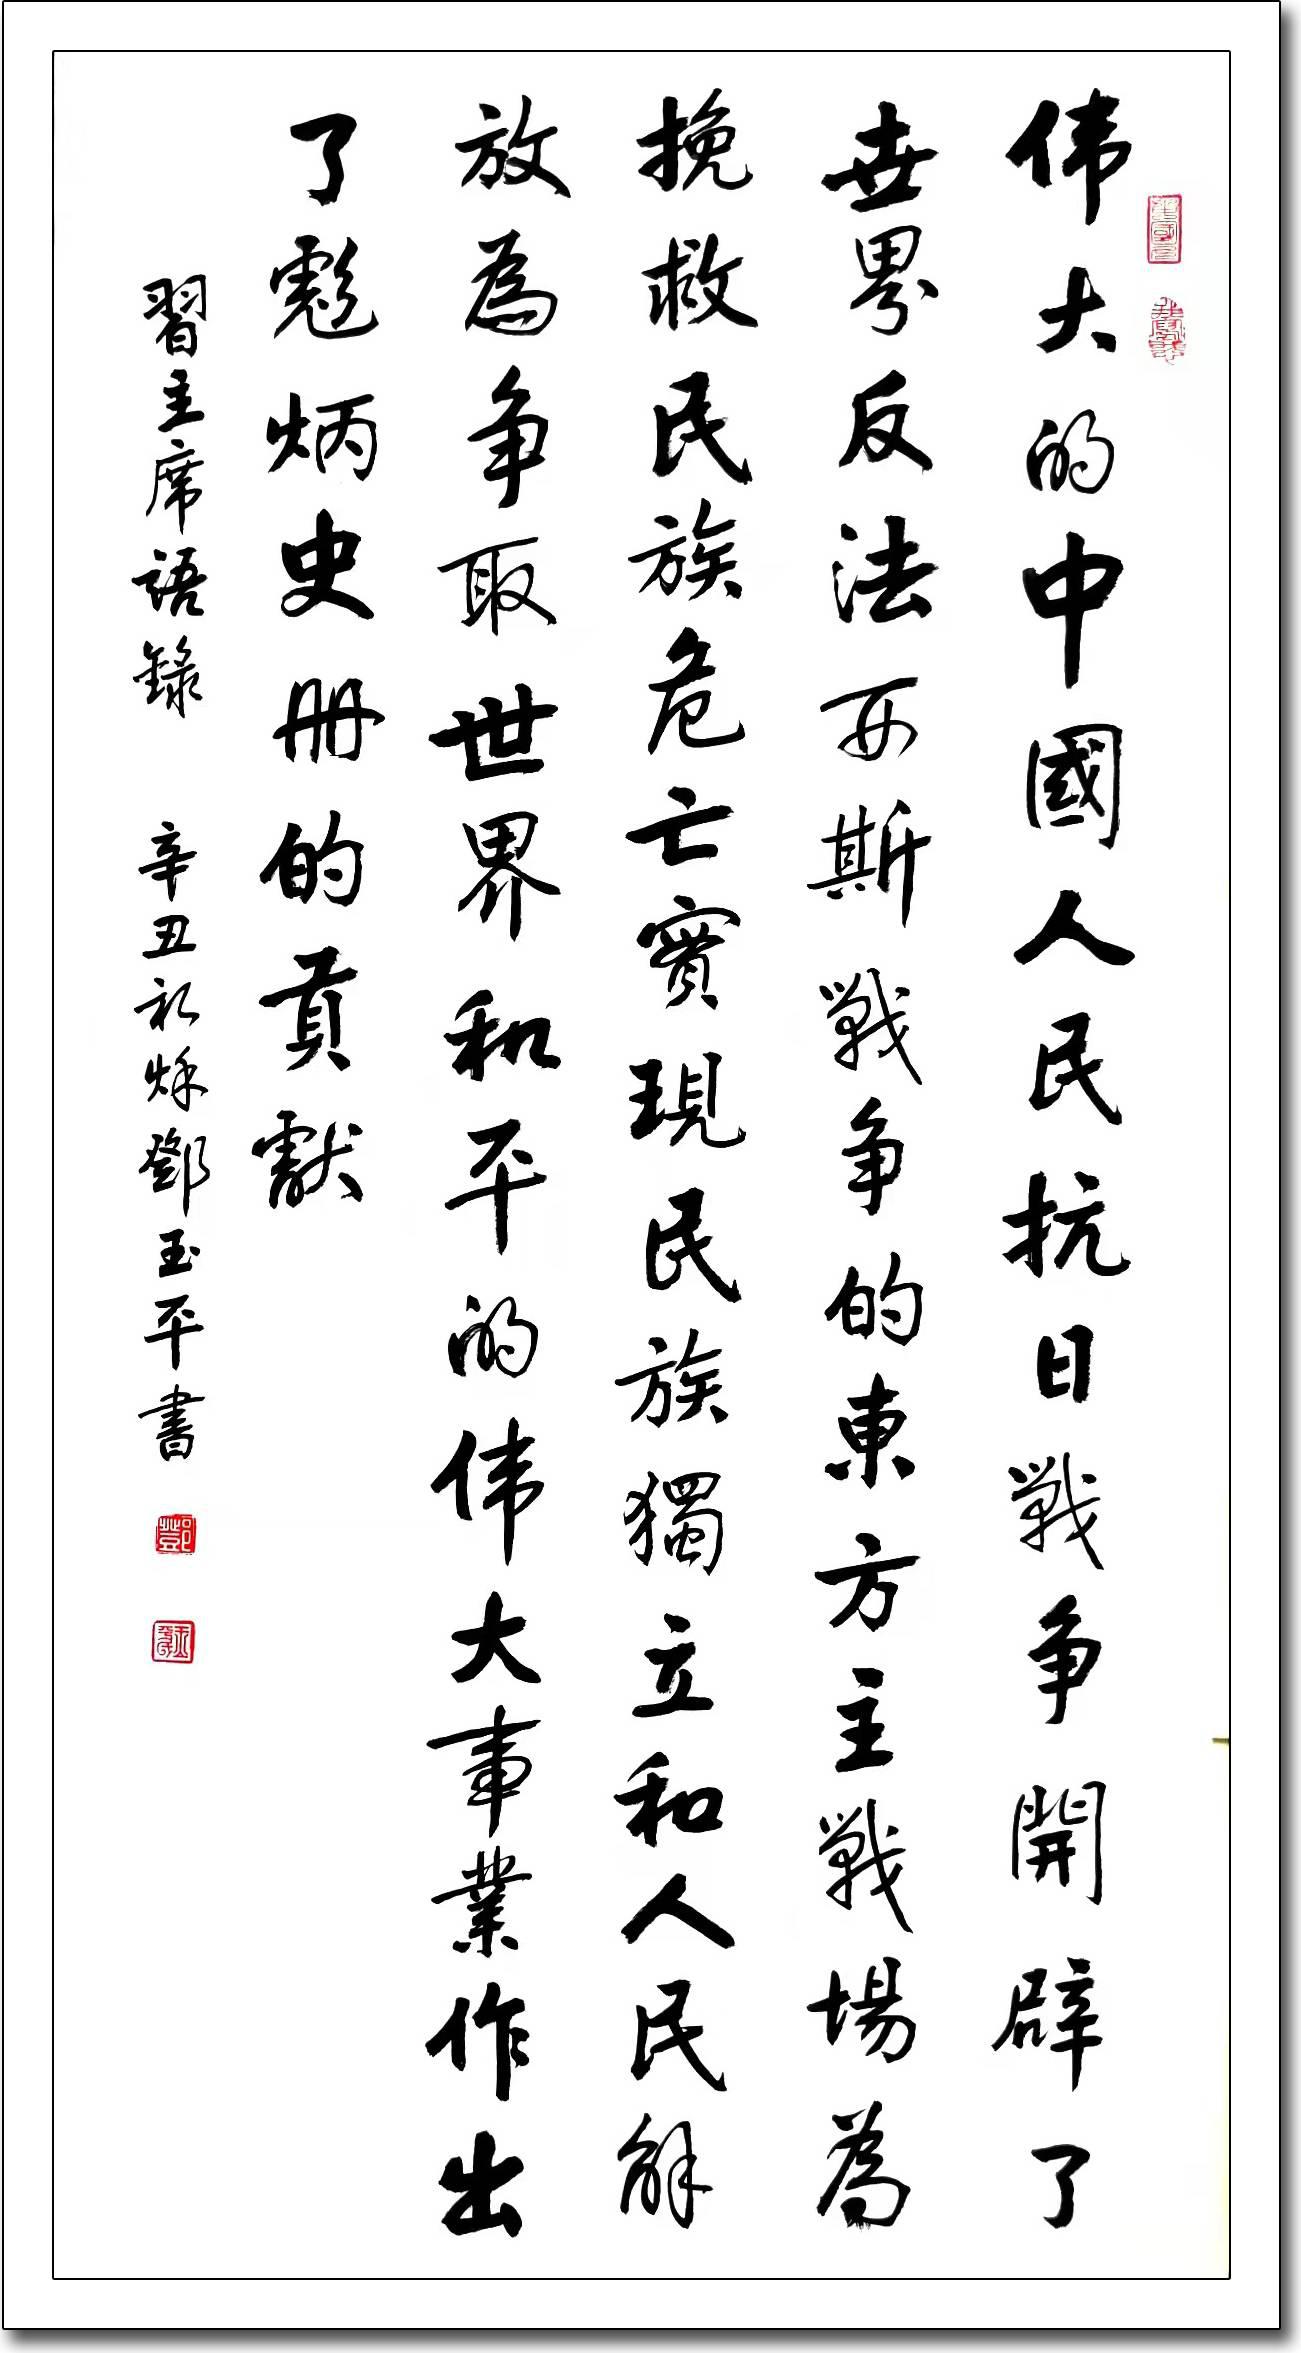 伟大的中國人民抗日戰争開辟了
世界反法西斯戰争的東方主戰場為
挽救民族危亡實現民族獨立和人民解
放為争取世界和平的伟大事業作出
了彪炳史册的貢獻
習主席語録 辛丑初秋鄧玉平書